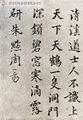 清溪道士人不識上
天下天鶴一隻洞門
深鎖碧窗寒滴露
研朱點周易